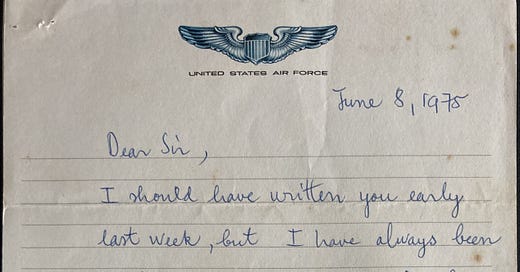 UNITED STATES AIR FORCE
June 8, 1975
Dear Sir,
I should have written you early
last week, but I have always been